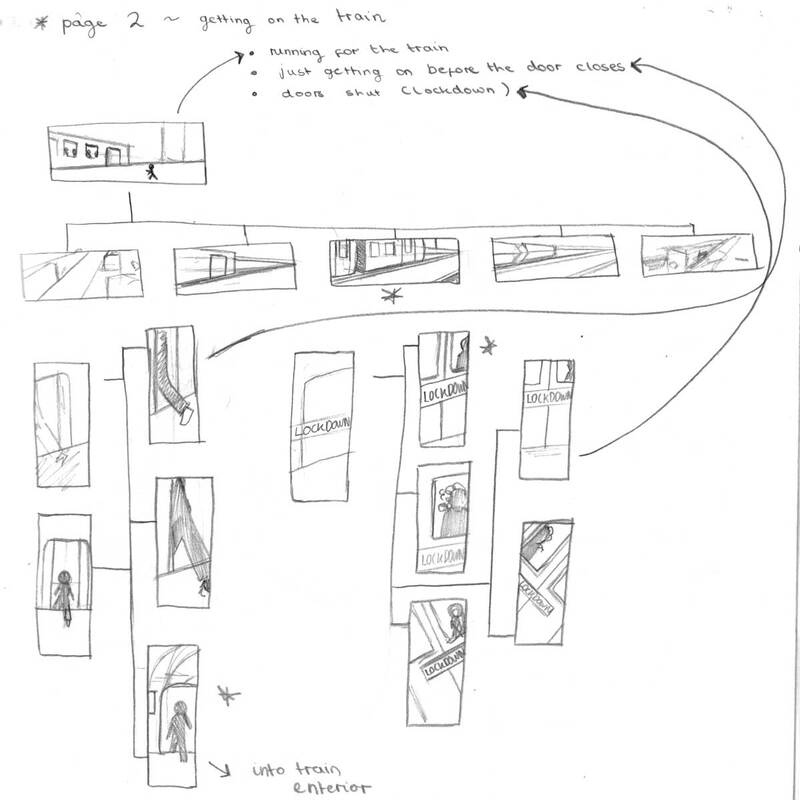 * page 2 ~ getting on the train
• running for the train
• just getting on before the door closes
• doors shut (Lockdown)
LOCKDOWN
LOCKDOWN
LOCKDOWN
LOCKDOWN
LOCKDOWN
LOCKDOWN
into train
enterior